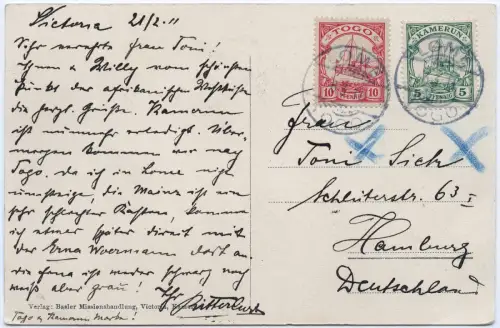 Victoria 21/2.11
Sehr verehrte Frau Toni!
Ihnen u Willy vom schönsten
Punkt der afrikanischen Westküste
die herzl. Grüße. Kamerun
ist nunmehr erledigt. Über-
morgen kommen wir nach
Togo. da ich in Lome
die Mainz ist ein
sehr schlechter Kasten, komme
ich etwas später direct mit
der Erna Woermann dort an.
die ist weder schwarz noch
weiß aber grau! Ihr Ritterlust
Verlag: Basler Missionshandlung, Victoria,
Togo u Kamerun Marke!
TOGO
10 PFENNIG 10
KAMERUN
5 PFENNIG 5
LOME
TOGO
Frau
Toni Sick
Schlüterstr. 63 I
Hamburg
Deutschland